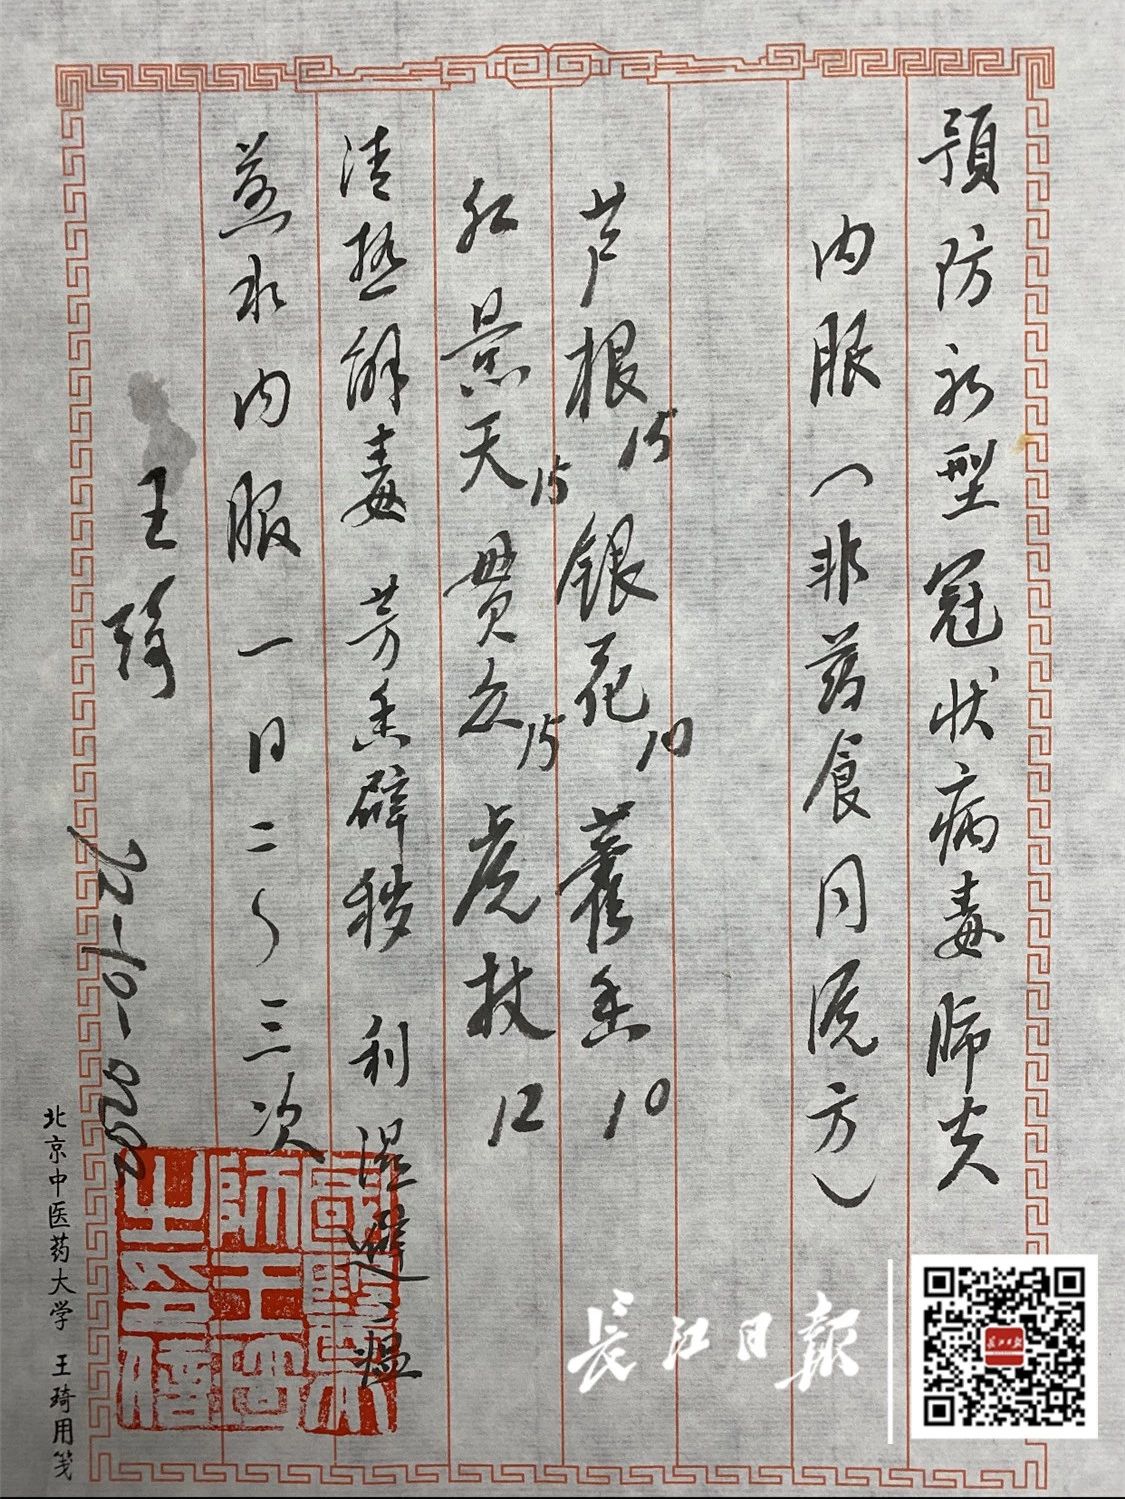 预防新型冠状病毒肺炎
内服（非药食同源方）
芦根15 银花10 藿香10
红景天15 贯众15 虎杖12
清热解毒 芳香辟秽 利湿避瘟
煎水内服 一日二～三次
王琦
2020-01-22
北京中医药大学 王琦用笺
长江日报
长江日报